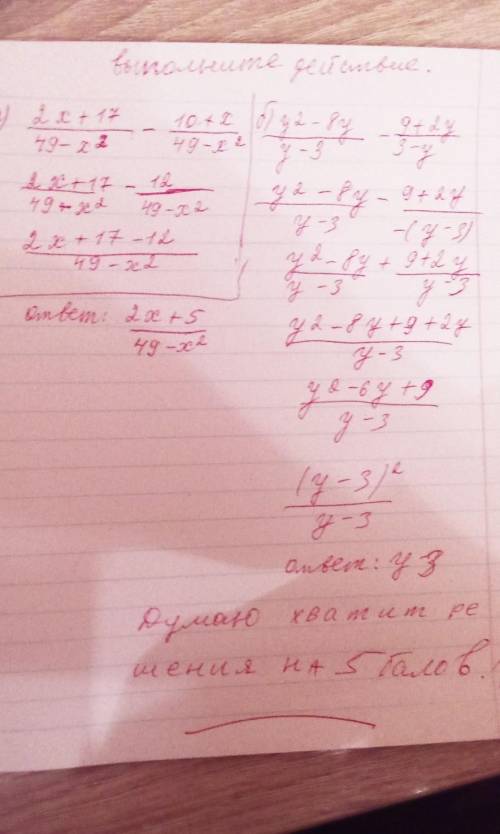 выполните действие.
) (2x+17)/(49-x²) - (10+x)/(49-x²)
(2x+17)/(49-x²) - 12/(49-x²)
(2x+17-12)/(49-x²)
ответ: (2x+5)/(49-x²)
б) (y²-8y)/(y-3) - (9+2y)/(3-y)
(y²-8y)/(y-3) - (9+2y)/(-(y-3))
(y²-8y)/(y-3) + (9+2y)/(y-3)
(y²-8y+9+2y)/(y-3)
(y²-6y+9)/(y-3)
(y-3)²/(y-3)
ответ: y-3
Думаю хватит ре
шения на 5 балов.